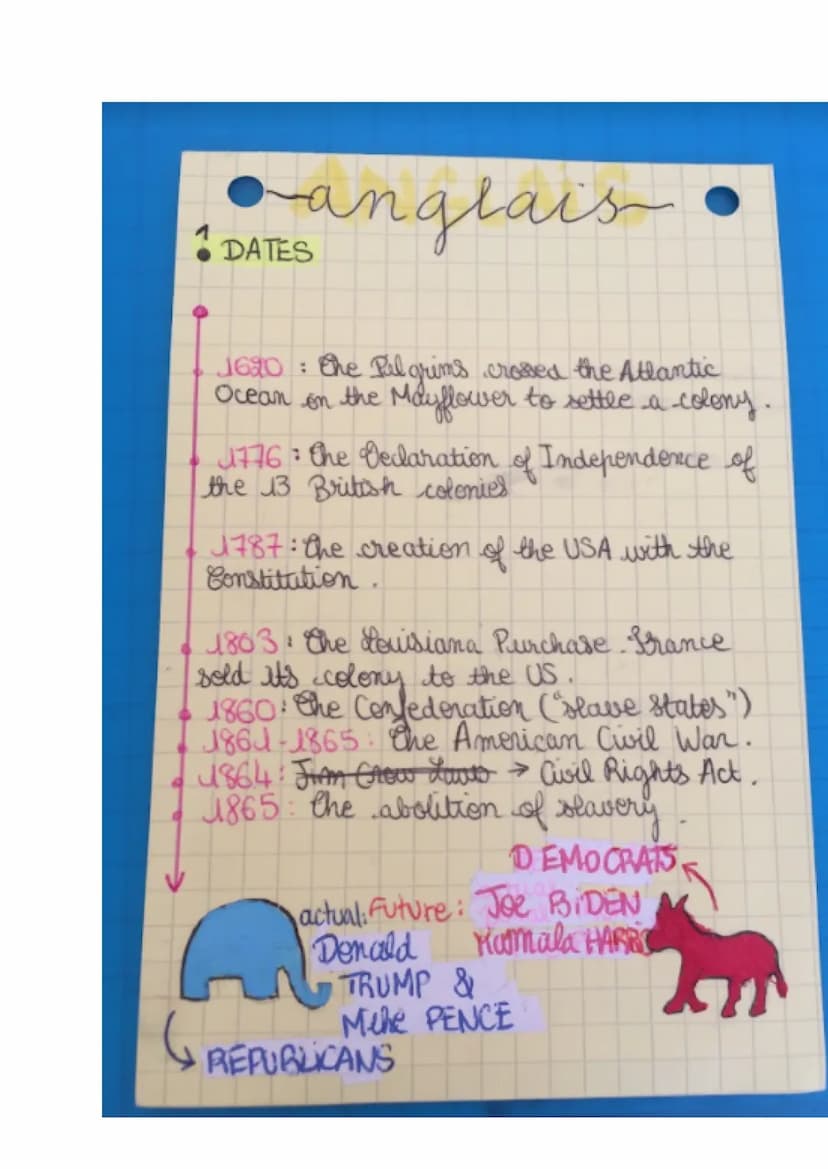 anglais
1 DATES
1620 : the Pilgrims crossed the Atlantic
Ocean on the Mayflower to settle a colony.
1776 : the Declaration of Independence of
the 13 British colonies
1787 : the creation of the USA with the
Constitution.
1803 : the Louisiana Purchase. France
sold its colony to the US.
1860 : the Confederation ("slave States")
1861-1865 : the American Civil War.
1864 : Jim Crow Laws → Civil Rights Act.
1865 : the abolition of slavery.
DEMOCRATS
actual: Future : Joe BiDEN
Donald Kamala HARRIS
TRUMP &
Mike PENCE
REPUBLICANS